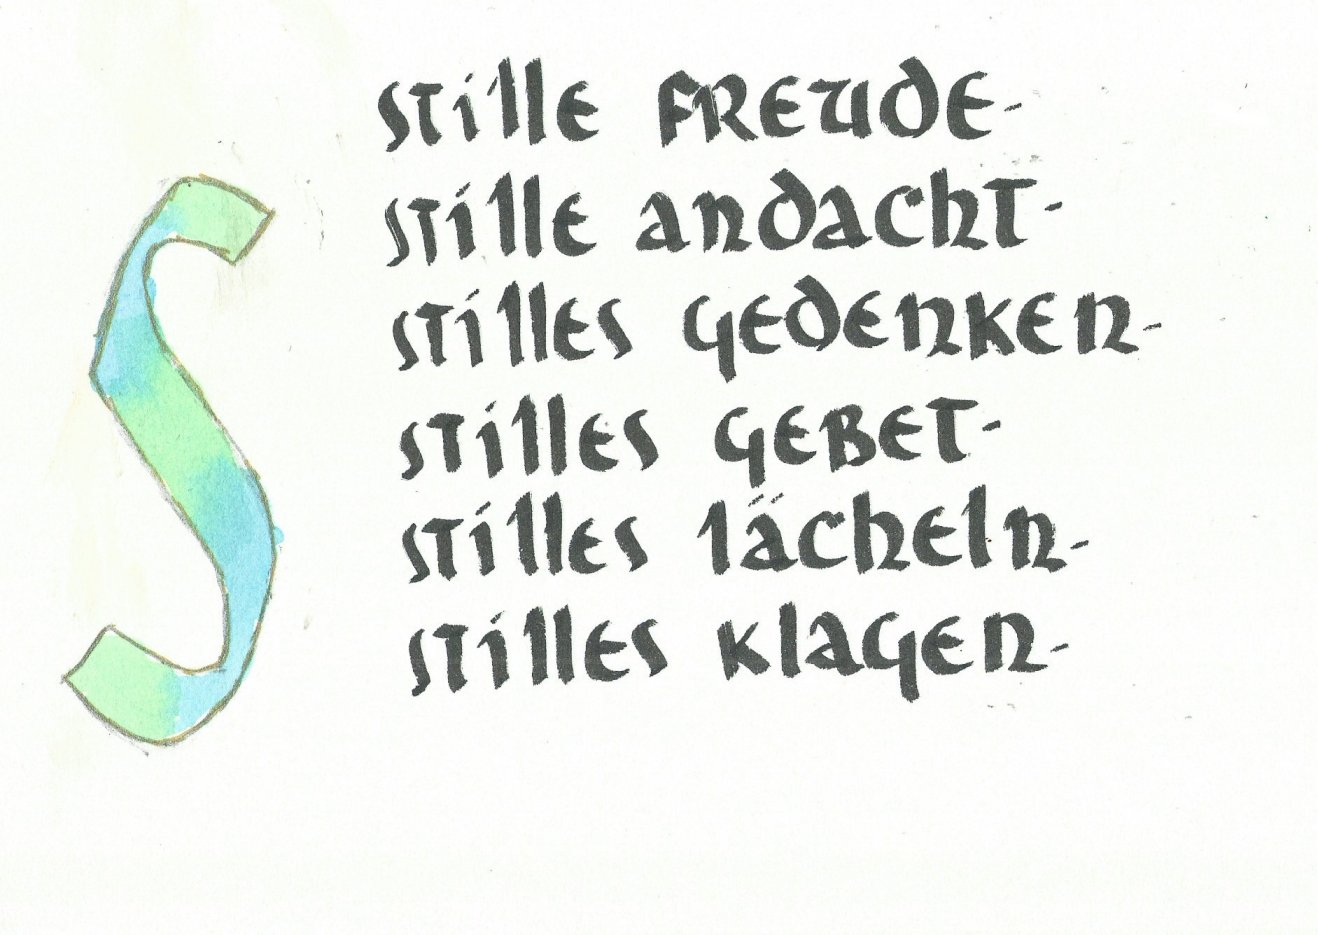 stille freude-
stille andacht-
stilles gedenken-
stilles gebet-
stilles lächeln-
stilles klagen-